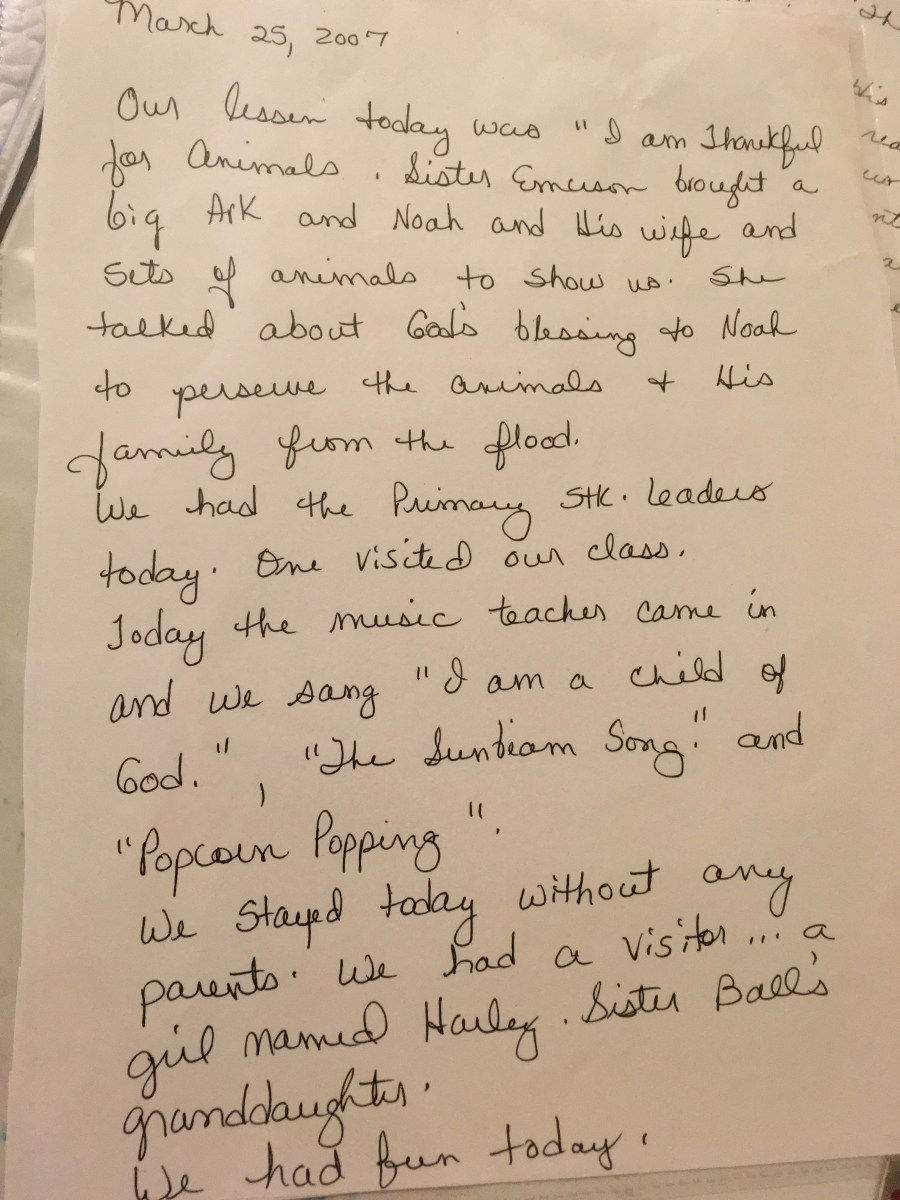 March 25, 2007
Our lesson today was "I am Thankful
for Animals. Sister Emerson brought a
big Ark and Noah and His wife and
Sets of animals to show us. She
talked about God's blessing to Noah
to perserve the animals + His
family from the flood.
We had the Primary Stk. leaders
today. One visited our class.
Today the music teacher came in
and we sang "I am a child of
God.", "The Sunbeam Song." and
"Popcorn Popping".
We stayed today without any
parents. We had a visitor... a
girl named Harley. Sister Ball's
granddaughter.
We had fun today.